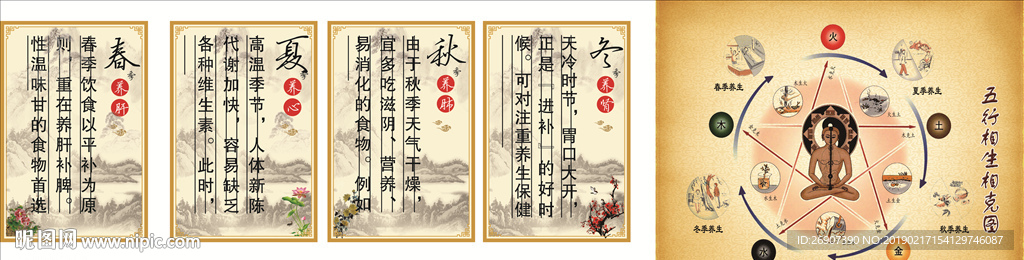 春
养肝
春季饮食以平补为原
则，重在养肝补脾。
性温味甘的食物首选
夏
养心
高温季节，人体新陈
代谢加快，容易缺乏
各种维生素。此时，
秋
养肺
由于秋季天气干燥，
宜多吃滋阴、营养、
易消化的食物。例如
冬
养肾
天冷时节，胃口大开，
正是『进补』的好时
候。可对注重养生保健
五行相生相克图
火
春季养生
夏季养生
木
土
冬季养生
秋季养生
水
金
昵图网 www.nipic.com
ID:26907390 NO:20190217154129746087